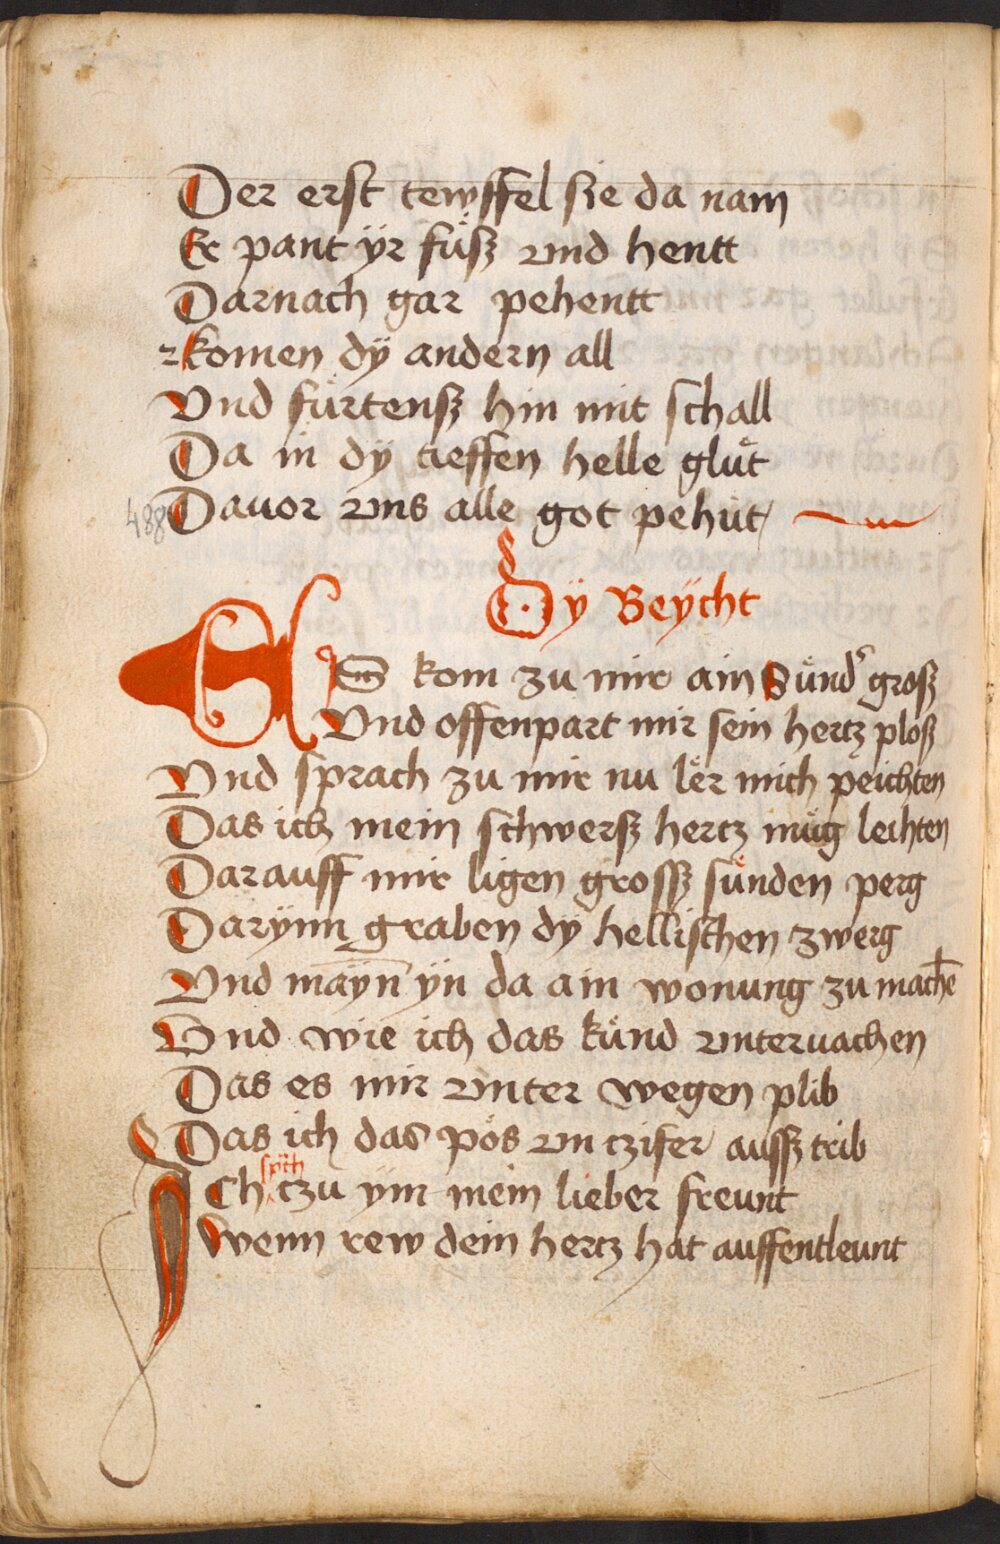 Der erst tewffel sie da nam
Er pant ÿr füsz vnd hentt
Darnach gar pehentt
komen dÿ andern all
Vnd fürtensz hin mit schall
Da in dÿ tieffen helle glut
488 Dauor vns alle got pehüt
Dÿ Beÿcht
kom zu mir ain Sünd' grosz
Vnd offenpart mir sein hertz plosz
Vnd sprach zu mir nu ler mich peichten
Das ich mein schwersz hertz müg leihten
Darauff mir ligen grossz sünden perg
Darÿnn graben dÿ hellischen zwerg
Vnd maÿn ÿn da ain wonung zu mach̄e
Vnd wie ich das künd vnteruachen
Das es mir vnter wegen plib
Das ich das pös vn tzifer aussz trib
Ich sprich tzu ÿm mein lieber freunt
Wenn rew dein hertz hat auffentleunt